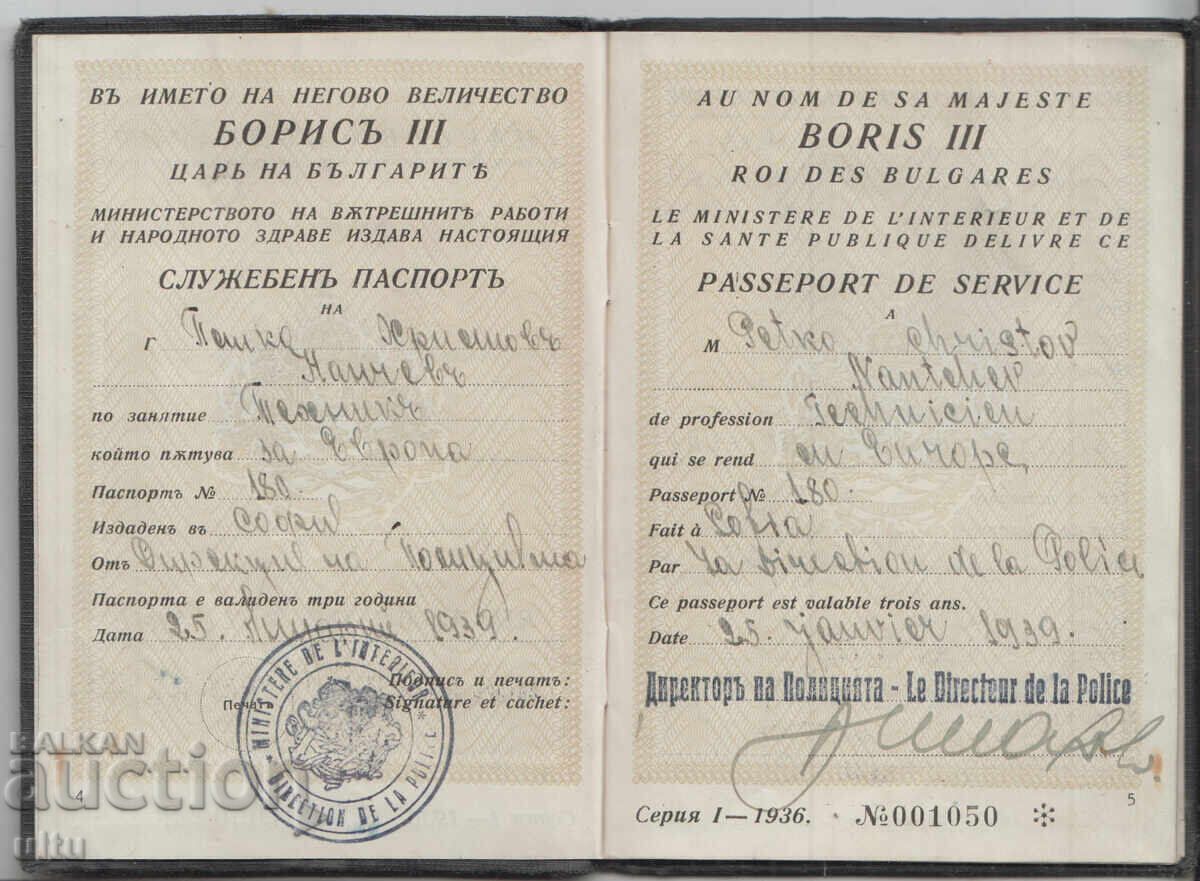 ВЪ ИМЕТО НА НЕГОВО ВЕЛИЧЕСТВО
БОРИСЪ III
ЦАРЬ НА БЪЛГАРИТѢ
МИНИСТЕРСТВОТО НА ВѪТРЕШНИТѢ РАБОТИ
И НАРОДНОТО ЗДРАВЕ ИЗДАВА НАСТОЯЩИЯ
СЛУЖЕБЕНЪ ПАСПОРТЪ
НА
Г Петко Христовъ
Нанчевъ
по занятие Техникъ
който пѫтува за Европа
Паспортъ № 180.
Издаденъ въ София
Отъ Дирекция на Полицията
Паспорта е валиденъ три години
Дата 25. Януарий 1939.
Печатъ
Подписъ и печатъ:
Signature et cachet:
MINISTERE DE L'INTERIEUR
* DIRECTION DE LA POLICE *
4
AU NOM DE SA MAJESTE
BORIS III
ROI DES BULGARES
LE MINISTERE DE L'INTERIEUR ET DE
LA SANTE PUBLIQUE DELIVRE CE
PASSEPORT DE SERVICE
A
M Petko Christov
Nantchev
de profession Technicien
qui se rend en Europe,
Passeport № 180.
Fait à Sofia
Par La Direction de la Police
Ce passeport est valable trois ans.
Date 25. janvier 1939.
Директоръ на Полицията - Le Directeur de la Police
5
Серия I—1936. №001050 ✻
BALKAN
auction
ultu